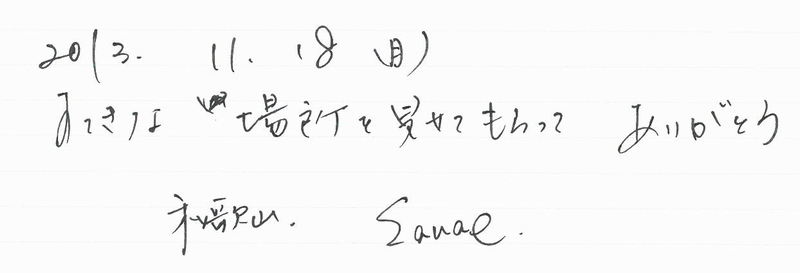 2013. 11. 18 (月)
すてきな 場所を見せてもらって ありがとう
和歌山. Sanae.